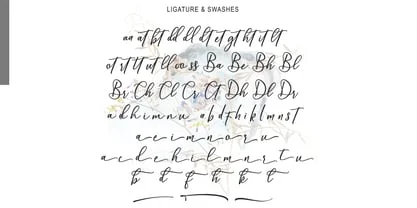 LIGATURE & SWASHES
an at bt dd dl dt et gt ht it lt
ot rt tt ut ll oo ss Ba Be Bh Bl
Br Ch Cl Cr Dh Dl Dr
a d h i m n u a b d f h i k l
a e i m n o r u
a c d e h i l m n r t u
b d f h k t